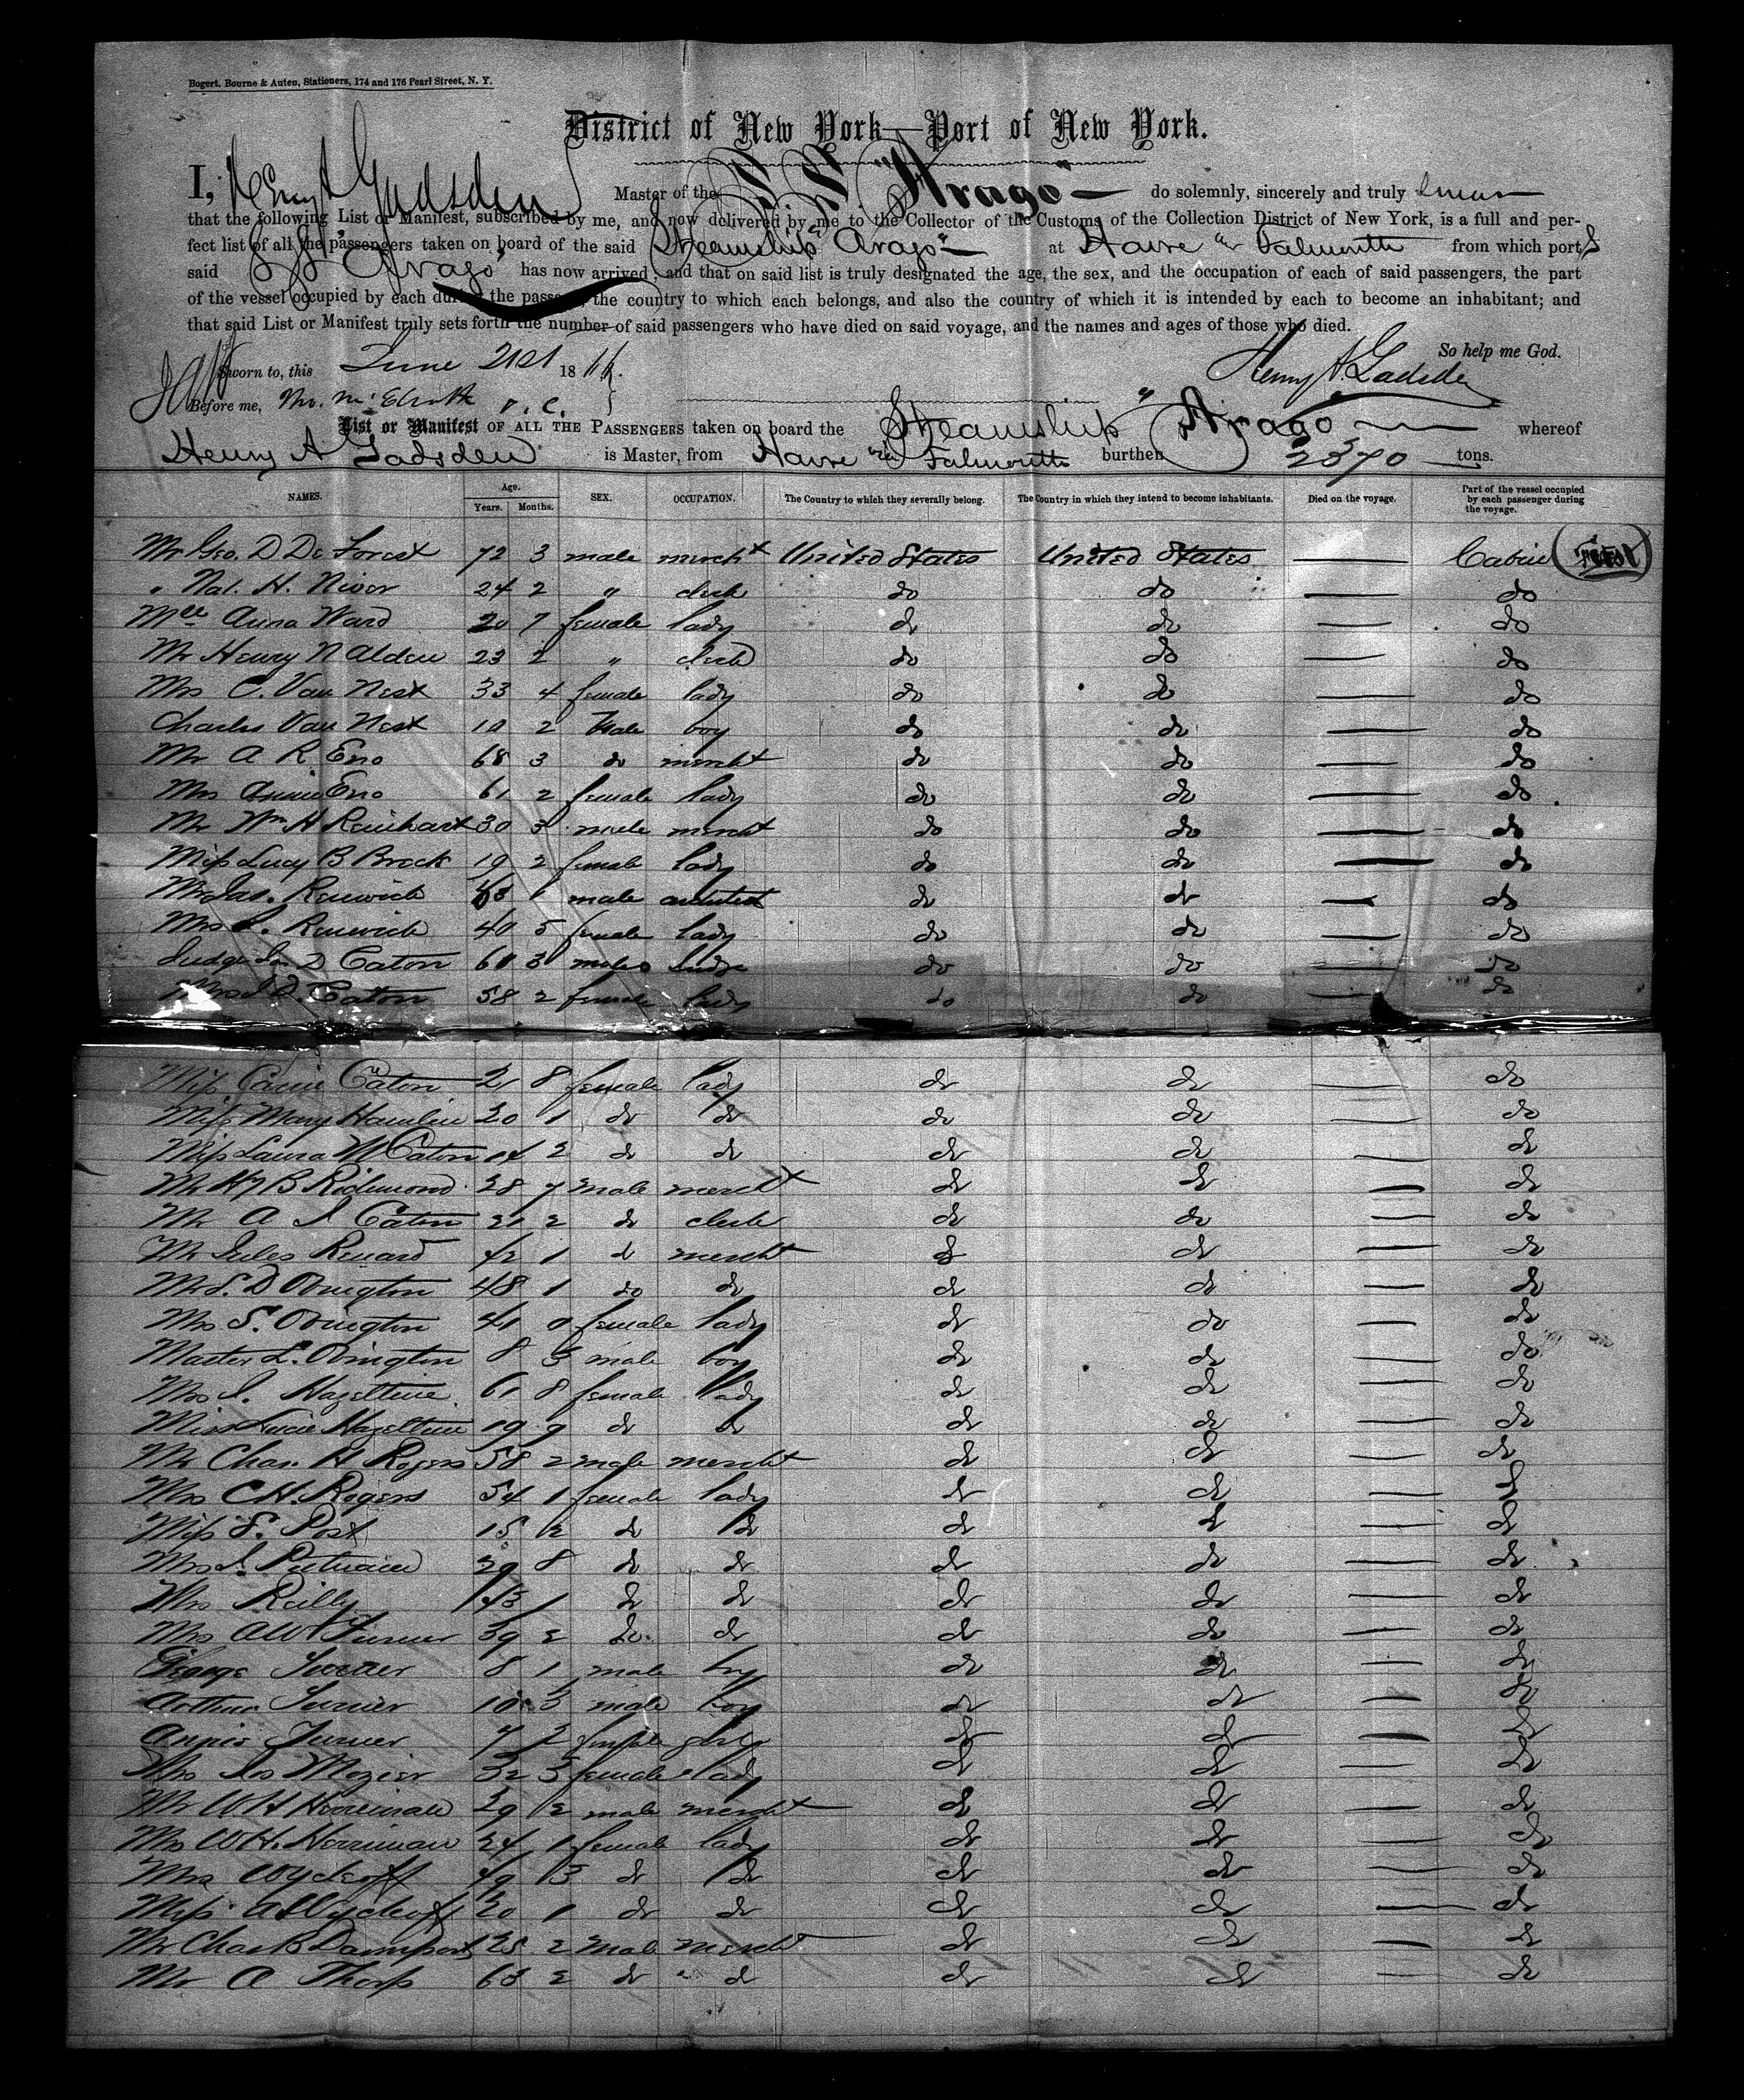 Bogert, Bourne & Auten, Stationers, 174 and 176 Pearl Street, N. Y.
District of New York—Port of New York.
I, Henry A Gadsden Master of the S. S. "Arago" do solemnly, sincerely and truly swear
that the following List or Manifest, subscribed by me, and now delivered by me to the Collector of the Customs of the Collection District of New York, is a full and per-
fect list of all the passengers taken on board of the said Steamship "Arago" at Havre Falmouth from which ports
said S.S. "Arago" has now arrived; and that on said list is truly designated the age, the sex, and the occupation of each of said passengers, the part
of the vessel occupied by each during the passage, the country to which each belongs, and also the country of which it is intended by each to become an inhabitant; and
that said List or Manifest truly sets forth the number of said passengers who have died on said voyage, and the names and ages of those who died.
So help me God.
Sworn to, this June 21st 18 Henry A. Gadsden
Before me,
List or Manifest OF ALL THE PASSENGERS taken on board the Steamship "Arago" whereof
Henry A Gadsden is Master, from Havre via Falmouth burthen 2370 tons.
NAMES. Age. Years. Months. SEX. OCCUPATION. The Country to which they severally belong. The Country in which they intend to become inhabitants. Died on the voyage. Part of the vessel occupied by each passenger during the voyage.
Mr Geo. D De Forest 72 3 male mercht United States United States — Cabin First
" Nat. H. Nivor 24 2 " clerk do do — do
Mlle Anna Ward 20 7 female lady do do — do
Mr Henry N Alden 23 2 " clerk do do — do
Mrs C. Van Nest 33 4 female lady do do — do
Charles Van Nest 10 2 Male boy do do — do
Mr A R Eno 68 3 do mercht do do — do
Mrs Annie Eno 61 2 female lady do do — do
Mr Wm H Reinhart 30 3 male mercht do do — do
Miss Lucy B Brock 19 2 female lady do do — do
Mr Jas. Renwick 48 1 male architect do do — do
Mrs S. Renwick 40 5 female lady do do — do
Judge Jno D Caton 60 3 male Judge do do — do
Mrs J D. Caton 58 2 female lady do do — do
Miss Carrie Caton 21 8 female lady do do — do
Miss Mary Hamlin 20 1 do do do do — do
Miss Laura M Caton 14 2 do do do do — do
Mr Hy B Richmond 28 7 male mercht do do — do
Mr A J Caton 21 2 do clerk do do — do
Mr Jules Renard 42 1 do mercht do do — do
Mr S. D Ovington 48 1 do do do do — do
Mrs S. Ovington 41 0 female lady do do — do
Master L. Ovington 8 3 male boy do do — do
Mrs J. Hazeltine 61 8 female lady do do — do
Miss Lucie Hazeltine 19 9 do do do do — do
Mr Chas. H Rogers 58 2 male mercht do do — do
Mrs C H. Rogers 54 1 female lady do do — do
Miss S. Post 15 2 do do do do — do
Mrs J. Putnam 39 8 do do do do — do
Mrs Reilly 43 1 do do do do — do
Mrs A W Turner 39 2 do do do do — do
George Turner 8 1 male boy do do — do
Arthur Turner 10 3 male boy do do — do
Annie Turner 7 2 female girl do do — do
Mrs Jos Mozier 52 3 female lady do do — do
Mr W H Herriman 39 2 male mercht do do — do
Mrs W H. Herriman 24 1 female lady do do — do
Mrs Wyckoff 49 3 do do do do — do
Miss A Wyckoff 20 1 do do do do — do
Mr Chas B Davenport 25 2 male mercht do do — do
Mr A Thorp 63 2 do do do do — do